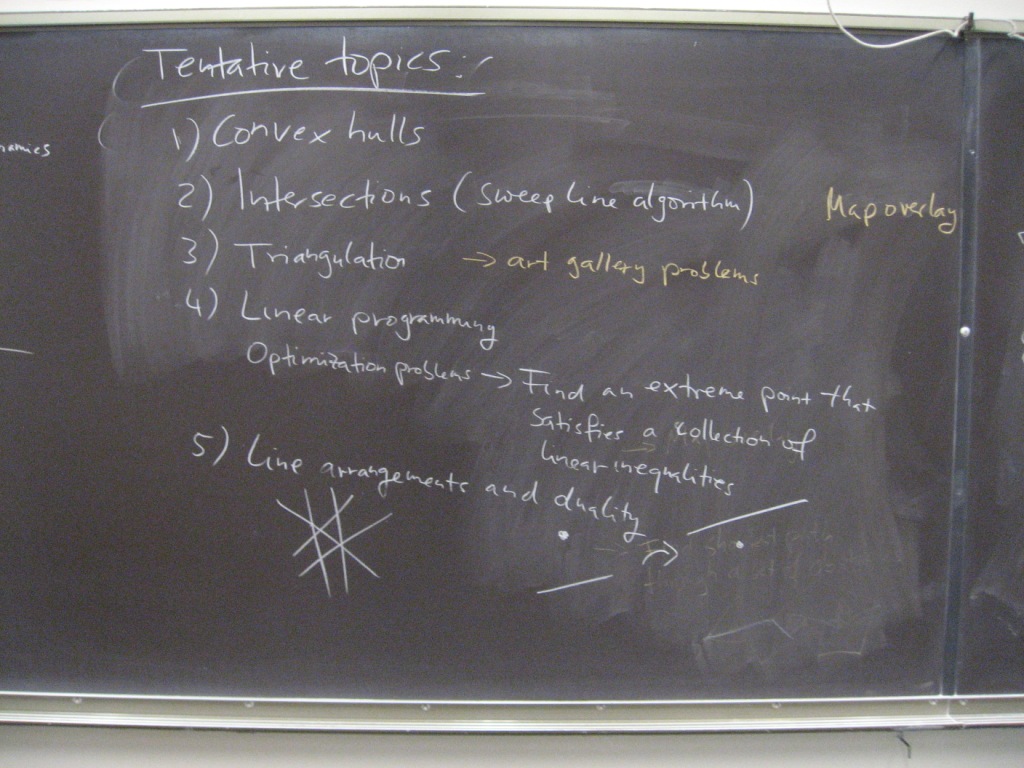 Tentative topics:
1) Convex hulls
2) Intersections (sweep line algorithm) Map overlay
3) Triangulation → art gallery problems
4) Linear programming
Optimization problems → Find an extreme point that
satisfies a collection of
linear inequalities
5) Line arrangements and duality